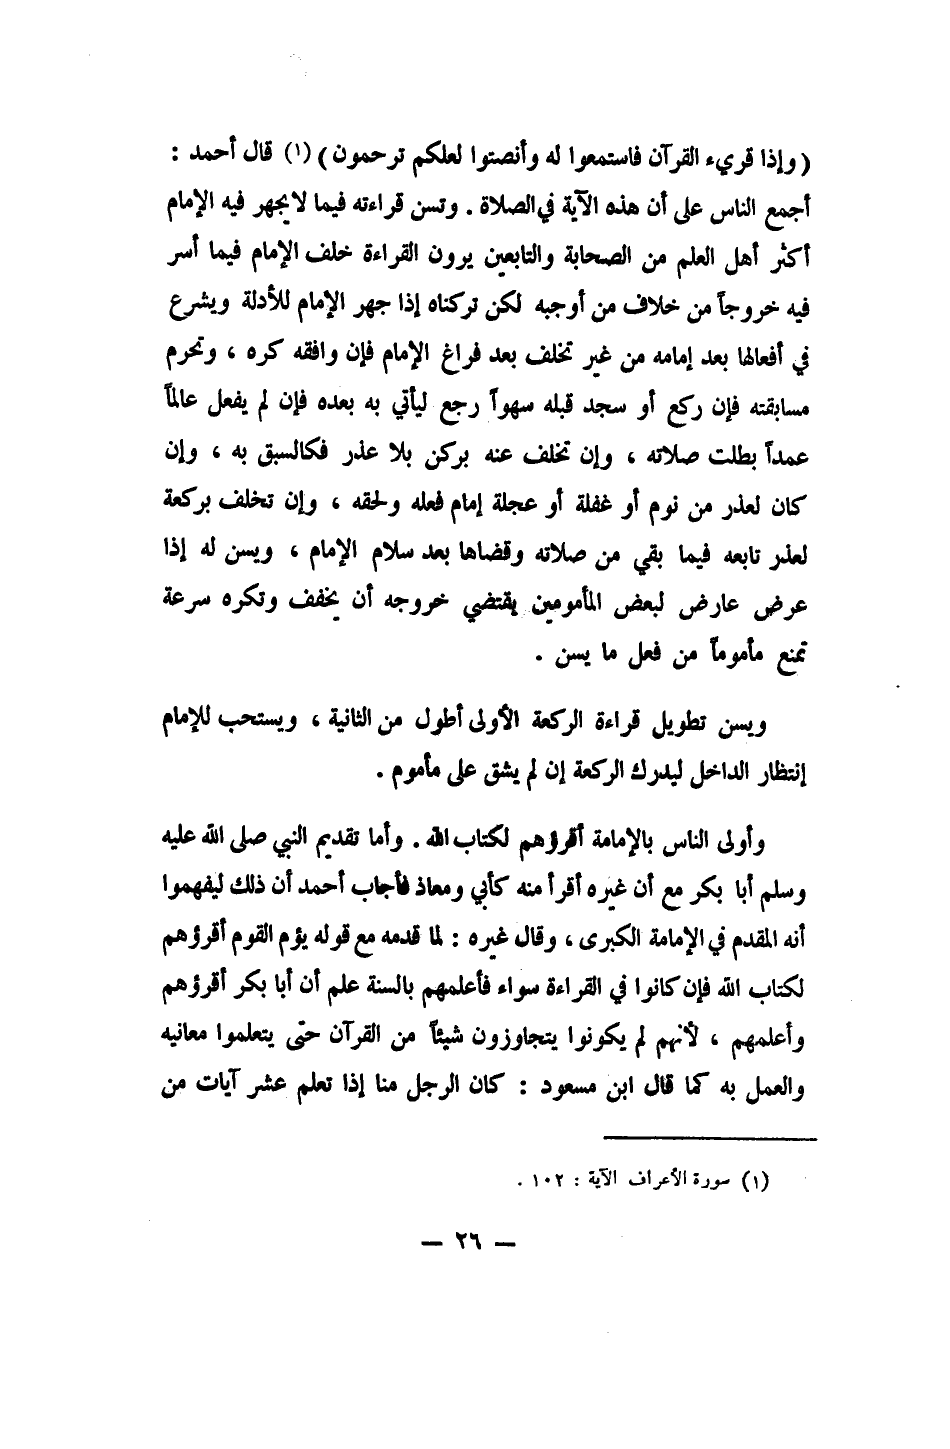 (وإذا قريء القرآن فاستمعوا له وأنصتوا لعلكم ترحمون) (١) قال أحمد :
أجمع الناس على أن هذه الآية في الصلاة . وتسن قراءته فيما لا يجهر فيه الإمام
أكثر أهل العلم من الصحابة والتابعين يرون القراءة خلف الإمام فيما أسر
فيه خروجاً من خلاف من أوجبه لكن تركناه إذا جهر الإمام للأدلة ويشرع
في أفعالها بعد إمامه من غير تخلف بعد فراغ الإمام فإن وافقه كره ، وتحرم
مسابقته فإن ركع أو سجد قبله سهواً رجع ليأتي به بعده فإن لم يفعل عالماً
عمداً بطلت صلاته ، وإن تخلف عنه بركن بلا عذر فكالسبق به ، وإن
كان لعذر من نوم أو غفلة أو عجلة إمام فعله ولحقه ، وإن تخلف بركعة
لعذر تابعه فيما بقي من صلاته وقضاها بعد سلام الإمام ، ويسن له إذا
عرض عارض لبعض المأمومين يقتضي خروجه أن يخفف وتكره سرعة
تمنع مأموماً من فعل ما يسن .
ويسن تطويل قراءة الركعة الأولى أطول من الثانية ، ويستحب للإمام
إنتظار الداخل ليدرك الركعة إن لم يشق على مأموم .
وأولى الناس بالإمامة أقرؤهم لكتاب الله . وأما تقديم النبي صلى الله عليه
وسلم أبا بكر مع أن غيره أقرأ منه كأبي ومعاذ فأجاب أحمد أن ذلك ليفهموا
أنه المقدم في الإمامة الكبرى ، وقال غيره : لما قدمه مع قوله يؤم القوم أقرؤهم
لكتاب الله فإن كانوا في القراءة سواء فأعلمهم بالسنة علم أن أبا بكر أقرؤهم
وأعلمهم ، لأنهم لم يكونوا يتجاوزون شيئاً من القرآن حتى يتعلموا معانيه
والعمل به كما قال ابن مسعود : كان الرجل منا إذا تعلم عشر آيات من
(١) سورة الأعراف الآية : ١٠٢ .
— ٢٦ —